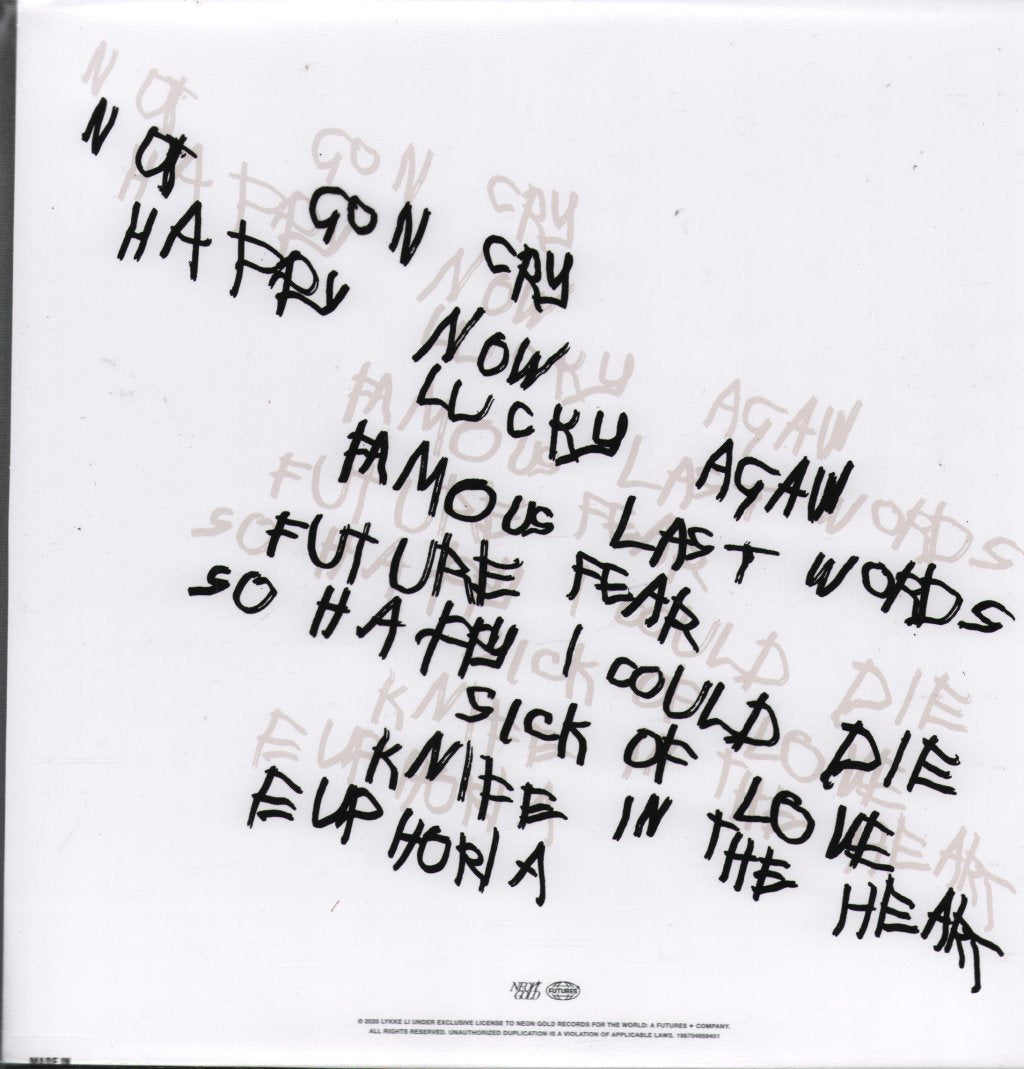 NOT GON CRY
HAPPY NOW
LUCKY AGAIN
FAMOUS LAST WORDS
FUTURE FEAR
SO HAPPY I COULD DIE
SICK OF LOVE
KNIFE IN THE HEART
EUPHORIA
NEON GOLD
FUTURES
© 2026 LYKKE LI UNDER EXCLUSIVE LICENSE TO NEON GOLD RECORDS FOR THE WORLD; A FUTURES + COMPANY.
ALL RIGHTS RESERVED. UNAUTHORIZED DUPLICATION IS A VIOLATION OF APPLICABLE LAWS. 198704858451
MADE IN